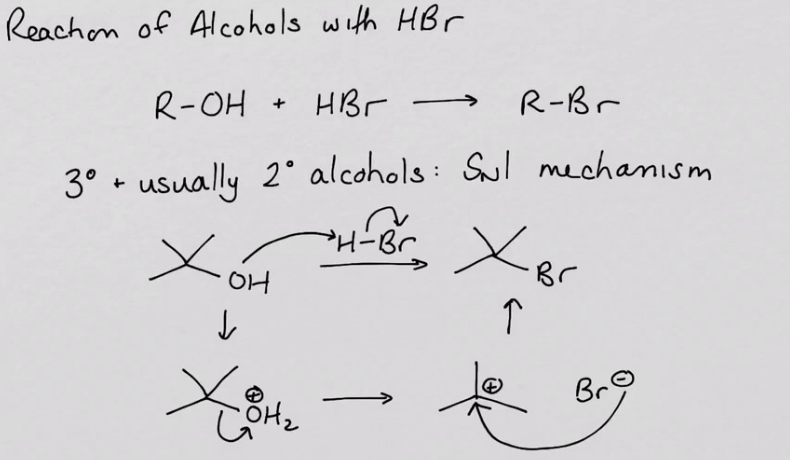 Reaction of Alcohols with HBr
R-OH + HBr → R-Br
3° + usually 2° alcohols: SN1 mechanism
H-Br
OH
Br
⊕
OH2
⊕
Br⊖